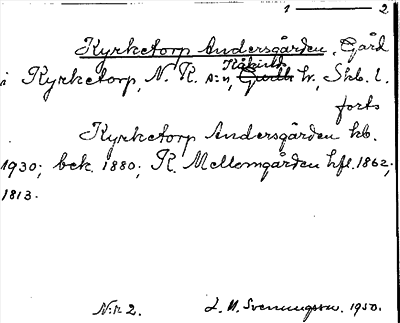 1 — 2
Kyrketorp Andersgården, Gård
Kåkinds
i Kyrketorp, N. K. s:n, Gudh. hr, Skb. l.
forts
Kyrketorp Andersgården kb.
1930; bek. 1880; K. Mellomgården hfl. 1862;
1813.
N:r 2. L. M. Svenungsson. 1950.